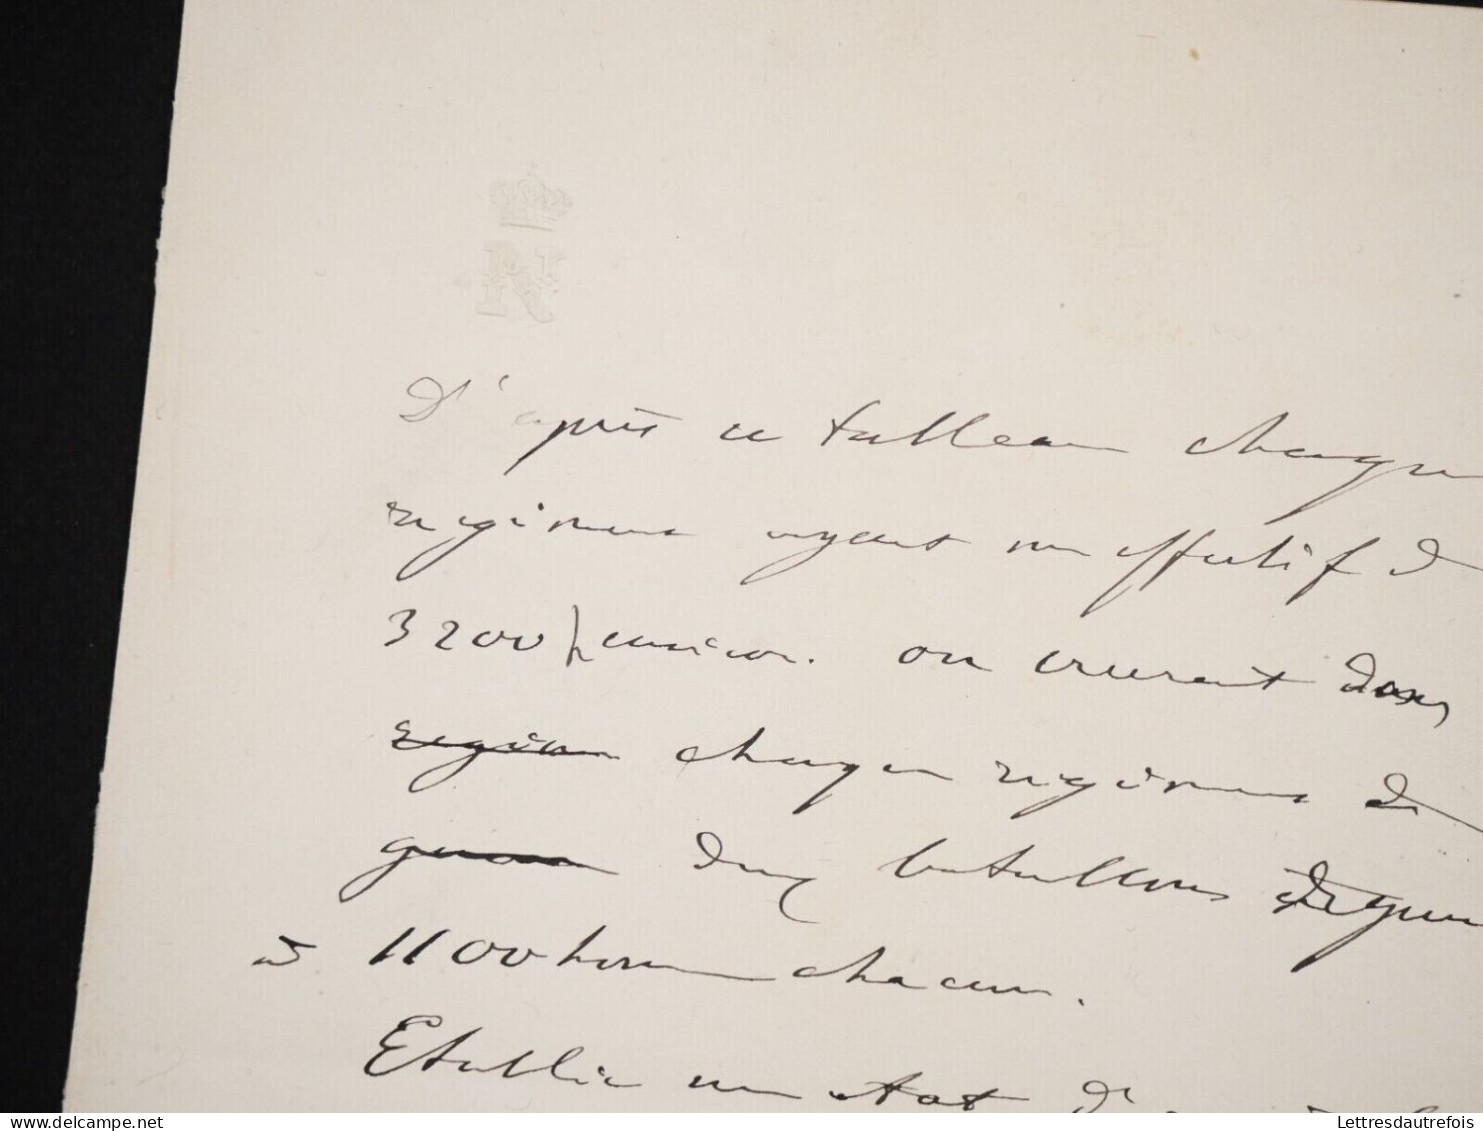 D'après ce tableau chaque
regiment ayant un effectif de
3200 hommes on creerait dans
region chaque regiment de
guerre deux bataillons de guerre
de 1100 hommes chacun.
Etablir un etat d'
Lettresdautrefois